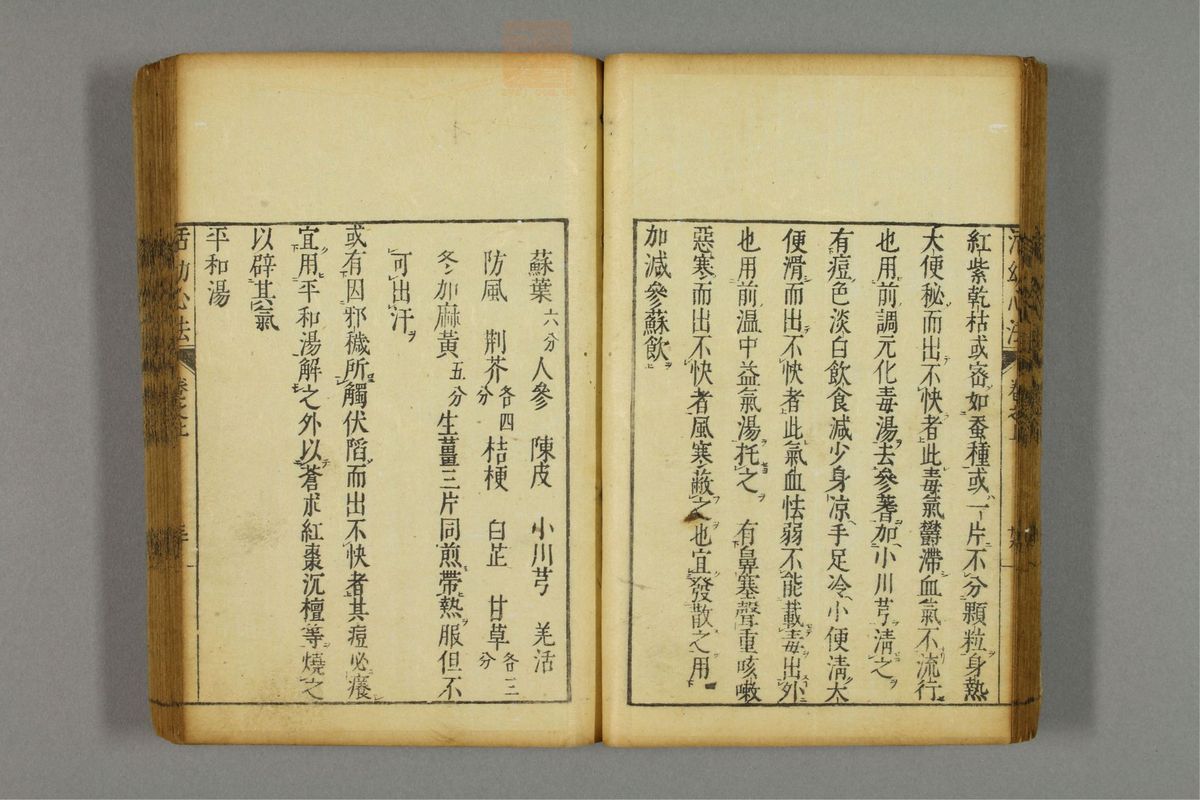 紅紫乾枯或密如蚕種或一片不分顆粒身熱
大便秘而出不快者此毒氣欝滯血氣不流行
也用前調元化毒湯去參蓍加小川芎淸之
有痘色淡白飮食減少身凉手足冷小便淸大
便滑而出不快者此氣血怯弱不能載毒出外
也用前温中益氣湯托之　有鼻塞聲重咳嗽
惡寒而出不快者風寒蔽之也宜發散之用
加減參蘇飮
蘇葉六分人參　陳皮　小川芎　羌活
防風　荆芥各四分　桔梗　白芷　甘草各三分
冬加麻黃五分生薑三片同煎帶熱服但不
可出汗
或有因邪穢所觸伏陷而出不快者其痘必癢
宜用平和湯解之外以蒼朮紅棗沉檀等燒之
以辟其氣
平和湯
活幼心法